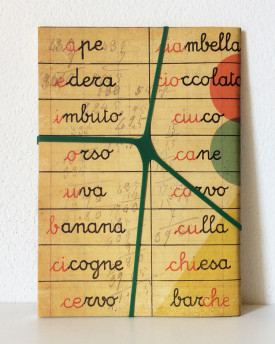 ape ciambella
edera cioccolato
imbuto ciuco
orso cane
uva corvo
banana culla
cicogne chiesa
cervo barche